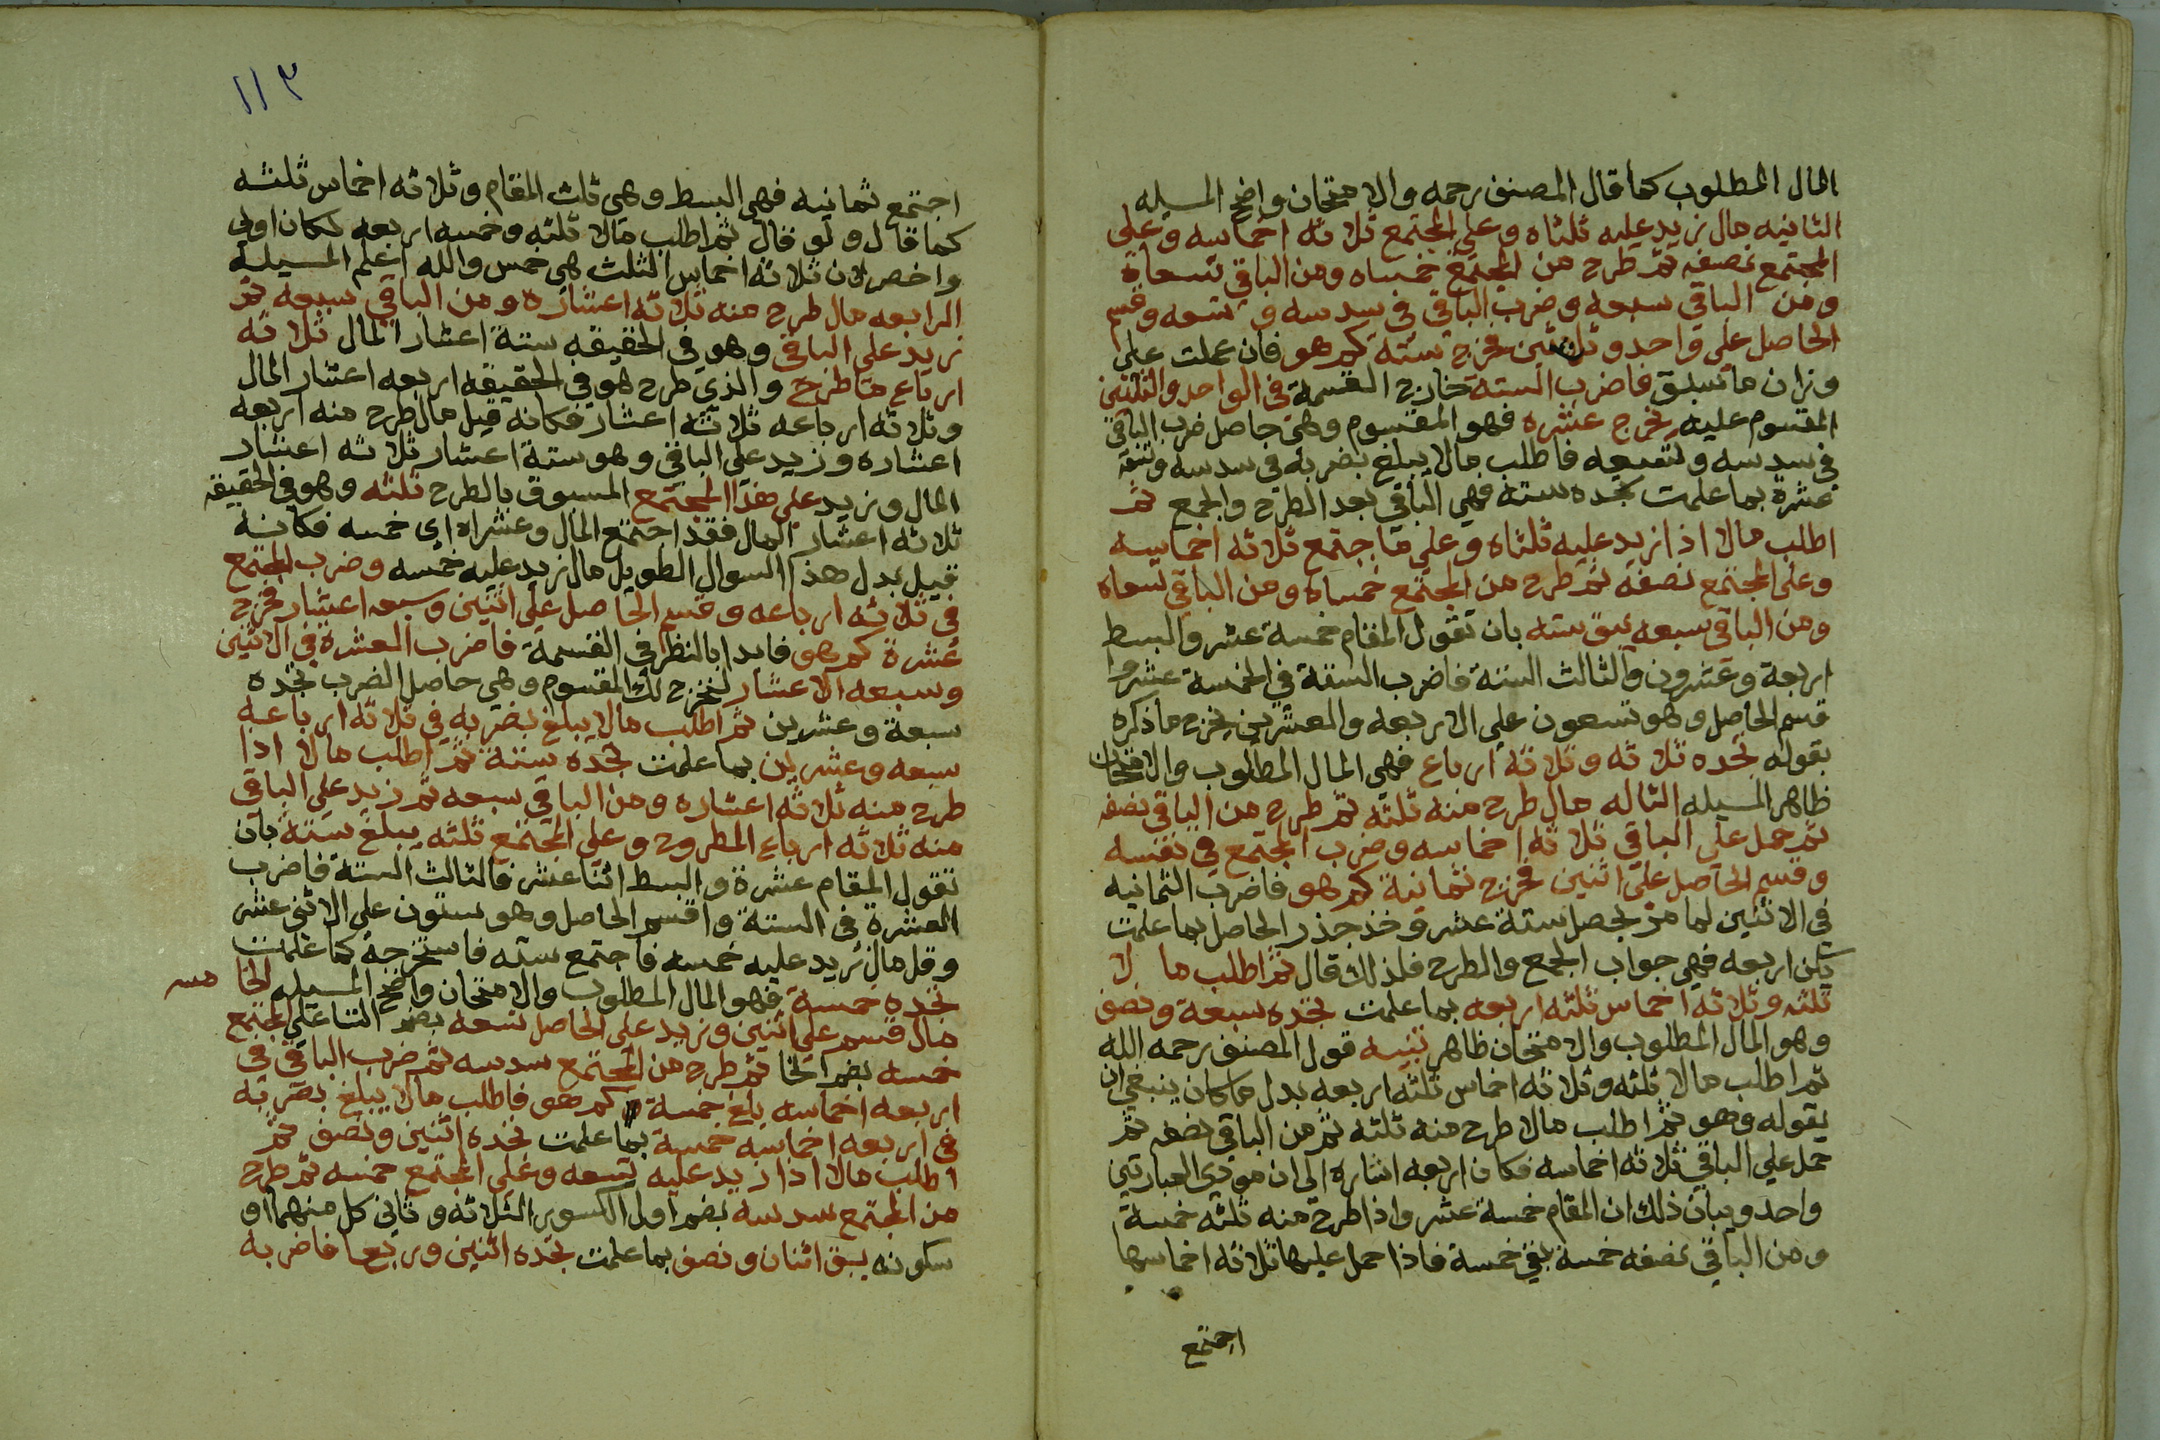 المال المطلوب كما قال المصنف رحمه والامتحان واضح المسيله
الثانيه مال زيد عليه ثلثاه وعلى المجتمع ثلاثه اخماسه وعلى
المجتمع نصفه ثم طرح من المجتمع خمساه ومن الباقي تسعاه
ومن الباقي سبعه وضرب الباقي في سدسه وتسعه وقسم
الحاصل على واحد وثلثين فخرج ستة كم هو فان عملت على
وزان ما سبق فاضرب الستة خارج القسمة في الواحد والثلثين
المقسوم عليه يخرج عشره فهو المقسوم وهي حاصل ضرب الباقي
في سدسه وتسعه فاطلب مالا يبلغ بضربه في سدسه وتسعه
عشرة بما علمت تجده سته فهي الباقي بعد الطرح والجمع ثم
اطلب مالا اذا زيد عليه ثلثاه وعلى ما اجتمع ثلاثه اخماسه
وعلى المجتمع نصفه ثم طرح من المجتمع خمساه ومن الباقي تسعاه
ومن الباقي سبعه يبق سته بان تقول المقام خمسة عشر والبسط
اربعة وعشرون والثالث الستة فاضرب الستة في الخمسة عشر وا
قسم الحاصل وهو تسعون على الاربعه والعشرين يخرج ما ذكره
بقوله تجده ثلاثه وثلاثة ارباع فهي المال المطلوب والامتحان
ظاهر المسيله الثاله مال طرح منه ثلثه ثم طرح من الباقي نصفه
ثم حمل على الباقي ثلاثه اخماسه وضرب المجتمع في نفسه
وقسم الحاصل على اثنين فخرج ثمانية كم هو فاضرب الثمانيه
في الاثنين لما مر يحصل ستة عشر وخذ جذر الحاصل بما علمت
يكن اربعه فهي جواب الجمع والطرح فلذلك قال ثم اطلب ما لا
ثلثه وثلاثه اخماس ثلثه اربعه بما علمت تجده سبعة ونصف
وهو المال المطلوب والامتحان ظاهر تنبيه قول المصنف رحمه الله
ثم اطلب مالا ثلثه وثلاثه اخماس ثلثه اربعه بدل ما كان ينبغي ان
يقوله وهو ثم اطلب مالا طرح منه ثلثه ثم من الباقي نصفه ثم
حمل على الباقي ثلاثه اخماسه فكان اربعه اشاره الى ان مودي العبارتين
واحد وبيان ذلك ان المقام خمسة عشر واذا طرح منه ثلثه خمسة
ومن الباقي نصفه خمسة بقي خمسة فاذا حمل عليها ثلاثه اخماسها
اجتمع
١١٣
اجتمع ثمانيه فهي البسط وهي ثلث المقام وثلاثه اخماس ثلثه
كما قال ولو قال ثم اطلب مالا ثلثه وخمسه اربعه لكان اولى
واخصر لان ثلاثة اخماس الثلث هي خمس والله اعلم المسيلة
الرابعه مال طرح منه ثلاثه اعشاره ومن الباقي سبعه ثم
زيد على الباقي وهو في الحقيقه ستة اعشار المال ثلاثه
ارباع ما طرح والذي طرح هو في الحقيقه اربعه اعشار المال
وثلاثه ارباعه ثلاثة اعشار فكانه قيل مال طرح منه اربعه
اعشاره وزيد على الباقي وهو ستة اعشار ثلاثه اعشار
المال وزيد على هذا المجتمع المسبوق بالطرح ثلثه وهو في الحقيقه
ثلاثه اعشار المال فقد اجتمع المال وعشراه اي خمسه فكانه
قيل بدل هذا السوال الطويل مال زيد عليه خمسه وضرب المجتمع
في ثلاثه ارباعه وقسم الحاصل على اثنين وسبعه اعشار فخرج
عشرة كم هو فابدا بالنظر في القسمة فاضرب العشرة في الاثنين
وسبعه الاعشار لتخرج لك المقسوم وهي حاصل الضرب تجده
سبعة وعشرين ثم اطلب مالا يبلغ بضربه في ثلاثه ارباعه
سبعه وعشرين بما علمت تجده ستة ثم اطلب مالا اذا
طرح منه ثلاثه اعشاره ومن الباقي سبعه ثم زيد على الباقي
منه ثلاثه ارباع المطروح وعلى المجتمع ثلثه يبلغ ستة بان
تقول المقام عشرة والبسط اثنا عشر فالثالث الستة فاضرب
العشرة في الستة واقسم الحاصل وهو ستون على الاثني عشر
وقل مال زيد عليه خمسه فاجتمع سته فاستخرجه كما علمت
تجده خمسة فهو المال المطلوب والامتحان واضح المسيله الخامسه
مال قسم على اثنين وزيد على الحاصل تسعه بضم التا على المجتمع
خمسه بضم الخا ثم طرح من المجتمع سدسه ثم ضرب الباقي في
اربعه اخماسه بلغ خمسة كم هو فاطلب مالا يبلغ بضربه
في اربعه اخماسه خمسة بما علمت تجده اثنين ونصف ثم
اطلب مالا اذا زيد عليه تسعه وعلى المجتمع خمسه ثم طرح
من المجتمع سدسه بضم اول الكسور الثلاثه وثاني كل منهما او
سكونه يبق اثنان ونصف بما علمت تجده اثنين وربعا فاضربه